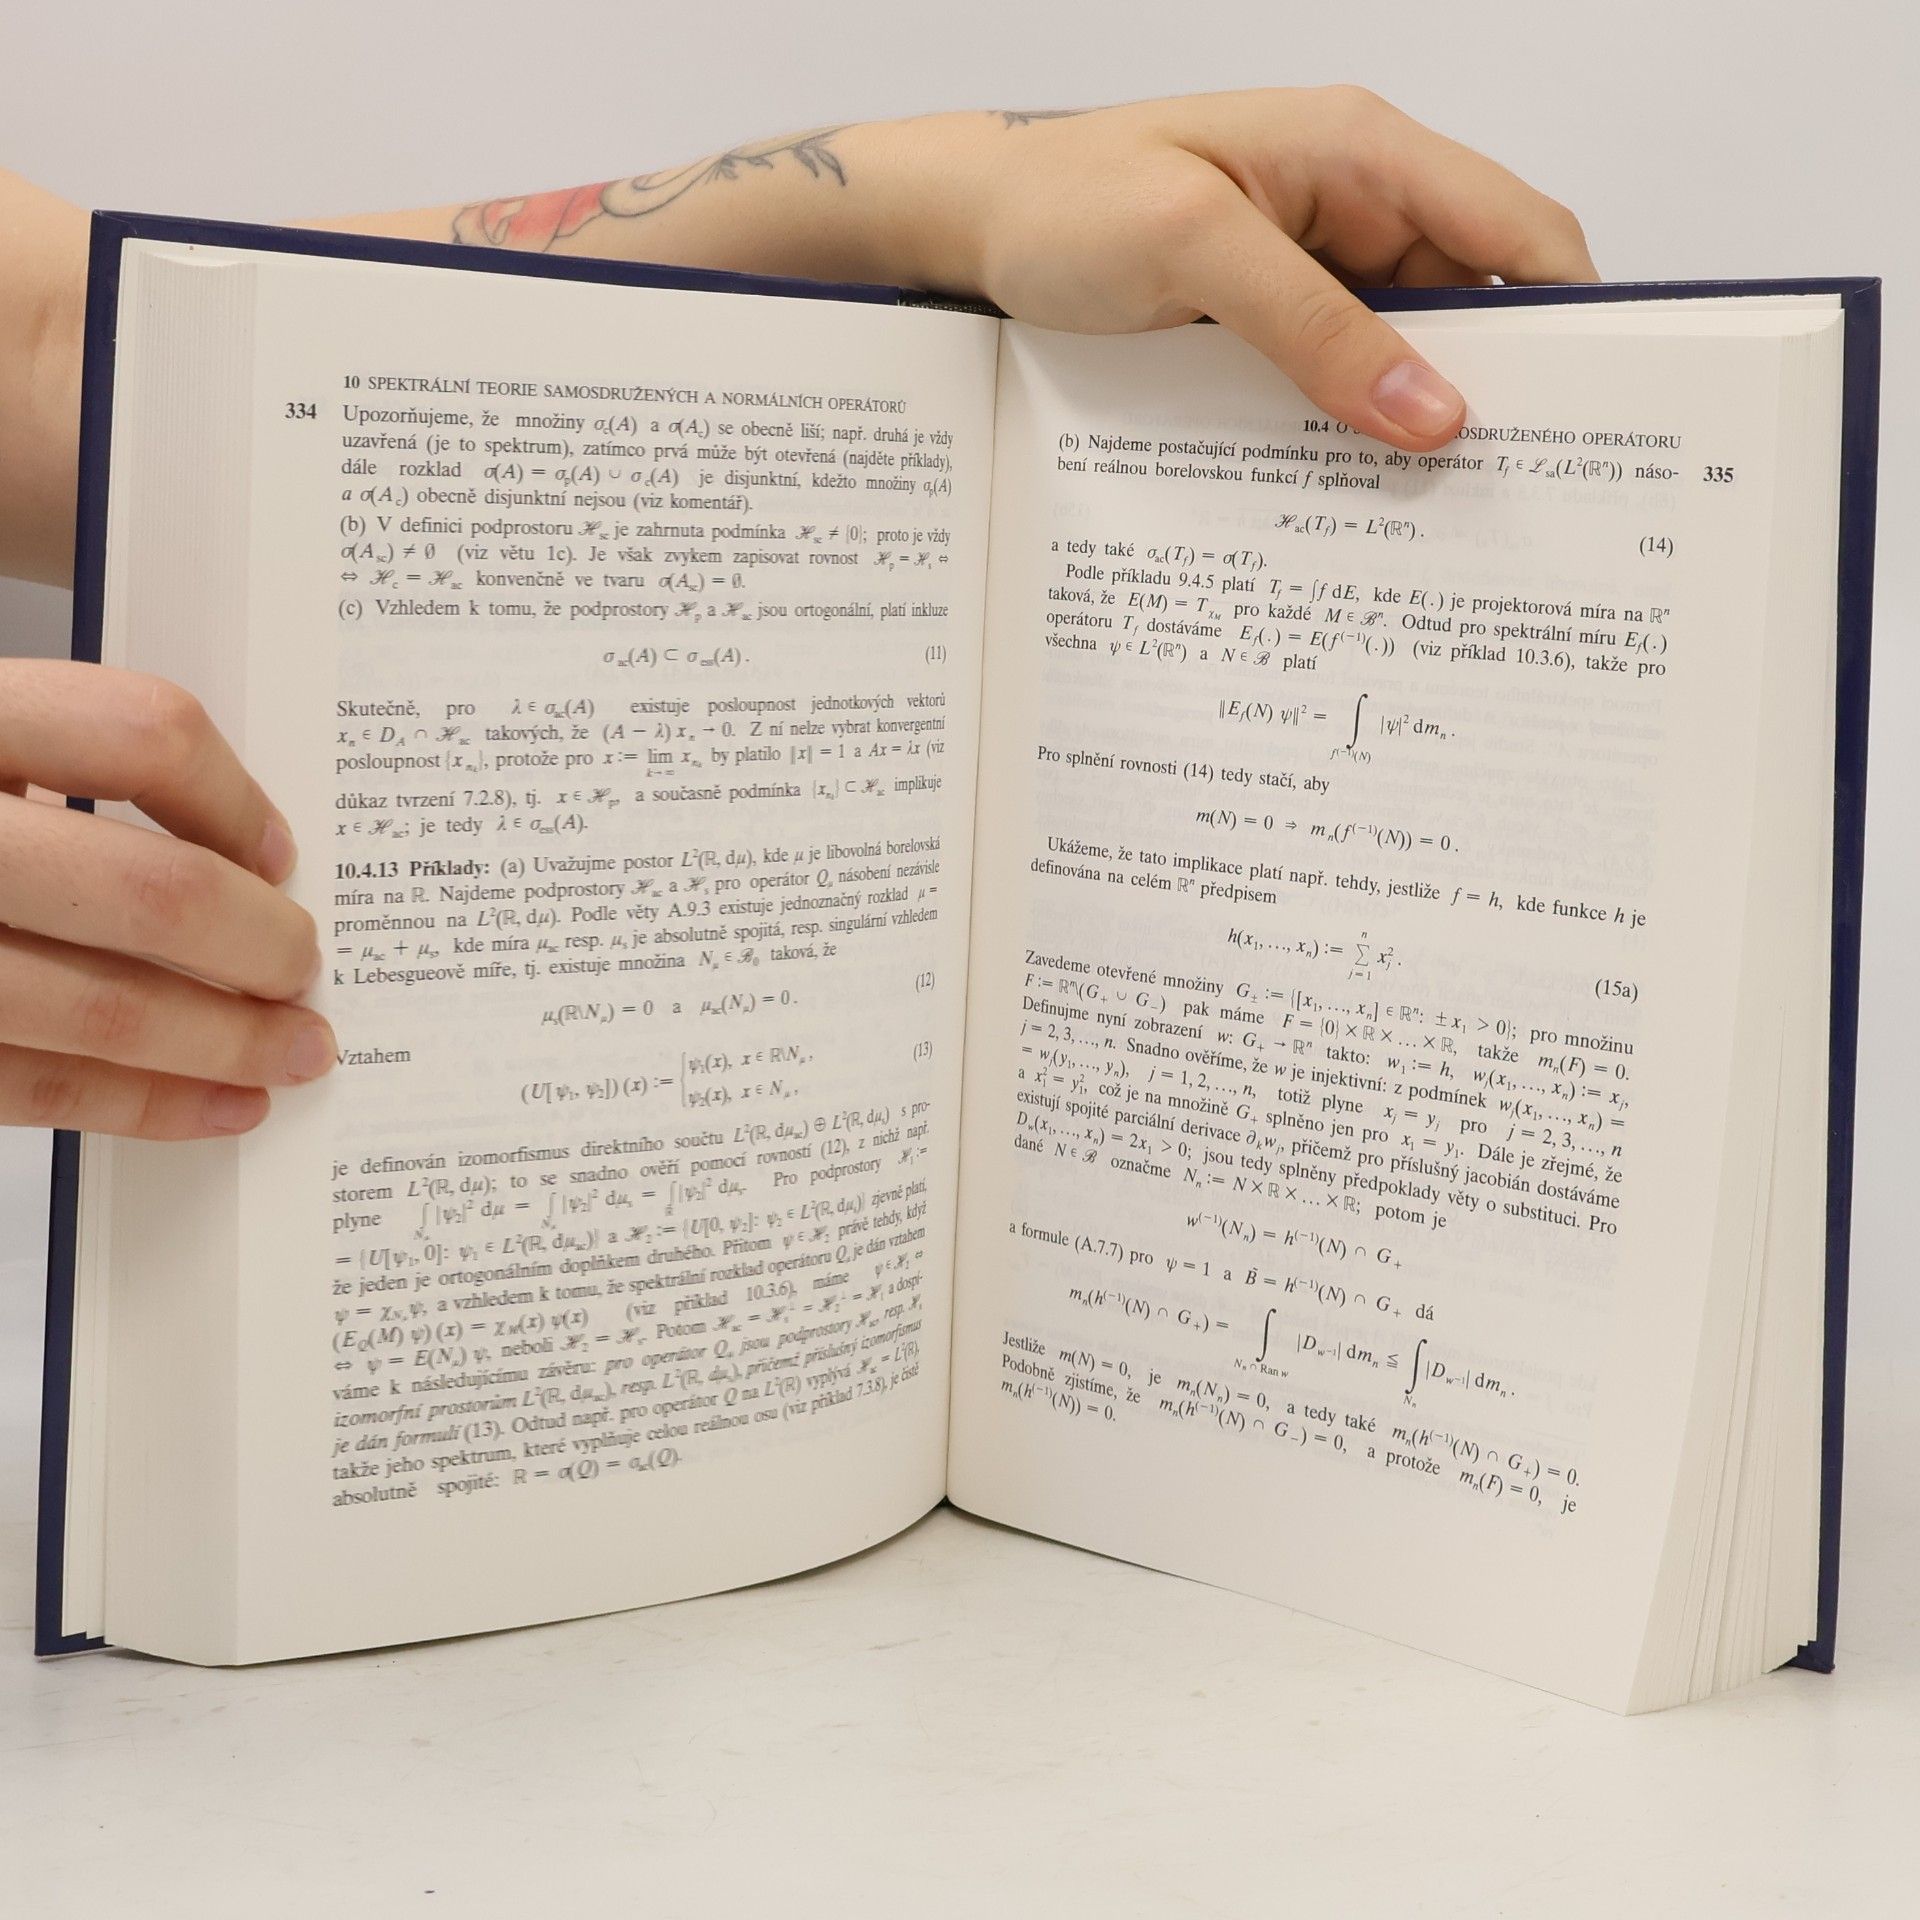 10 SPEKTRÁLNÍ TEORIE SAMOSDRUŽENÝCH A NORMÁLNÍCH OPERÁTORŮ
334
Upozorňujeme, že množiny σ_c(A) a σ(A_c) se obecně liší; např. druhá je vždy
uzavřená (je to spektrum), zatímco prvá může být otevřená (najděte příklady),
dále rozklad σ(A) = σ_p(A) ∪ σ_c(A) je disjunktní, kdežto množiny σ_p(A)
a σ(A_c) obecně disjunktní nejsou (viz komentář).
(b) V definici podprostoru ℋ_sc je zahrnuta podmínka ℋ_sc ≠ {0}; proto je vždy
σ(A_sc) ≠ ∅ (viz větu 1c). Je však zvykem zapisovat rovnost ℋ_p = ℋ_s ⇔
⇔ ℋ_c = ℋ_ac konvenčně ve tvaru σ(A_sc) = ∅.
(c) Vzhledem k tomu, že podprostory ℋ_p a ℋ_ac jsou ortogonální, platí inkluze
σ_ac(A) ⊂ σ_ess(A). (11)
Skutečně, pro λ ∈ σ_ac(A) existuje posloupnost jednotkových vektorů
x_n ∈ D_A ∩ ℋ_ac takových, že (A − λ) x_n → 0. Z ní nelze vybrat konvergentní
posloupnost {x_{n_k}}, protože pro x := lim_{k→∞} x_{n_k} by platilo ‖x‖ = 1 a Ax = λx (viz
důkaz tvrzení 7.2.8), tj. x ∈ ℋ_p, a současně podmínka {x_{n_k}} ⊂ ℋ_ac implikuje
x ∈ ℋ_ac; je tedy λ ∈ σ_ess(A).
10.4.13 Příklady: (a) Uvažujme postor L²(ℝ, dμ), kde μ je libovolná borelovská
míra na ℝ. Najdeme podprostory ℋ_ac a ℋ_s pro operátor Q_μ násobení nezávisle
proměnnou na L²(ℝ, dμ). Podle věty A.9.3 existuje jednoznačný rozklad μ =
= μ_ac + μ_s, kde míra μ_ac resp. μ_s je absolutně spojitá, resp. singulární vzhledem
k Lebesgueově míře, tj. existuje množina N_μ ∈ ℬ_0 taková, že
μ_s(ℝ\N_μ) = 0 a μ_ac(N_μ) = 0. (12)
Vztahem
(U[ψ₁, ψ₂]) (x) := { ψ₁(x), x ∈ ℝ\N_μ, (13)
ψ₂(x), x ∈ N_μ,
je definován izomorfismus direktního součtu L²(ℝ, dμ_ac) ⊕ L²(ℝ, dμ_s) s pro-
storem L²(ℝ, dμ); to se snadno ověří pomocí rovností (12), z nichž např.
plyne ∫_{N_μ} |ψ₂|² dμ = ∫_{N_μ} |ψ₂|² dμ_s = ∫_ℝ |ψ₂|² dμ_s. Pro podprostory ℋ₁ :=
= {U[ψ₁, 0]: ψ₁ ∈ L²(ℝ, dμ_ac)} a ℋ₂ := {U[0, ψ₂]: ψ₂ ∈ L²(ℝ, dμ_s)} zjevně platí,
že jeden je ortogonálním doplňkem druhého. Přitom ψ ∈ ℋ₂ právě tehdy, když
ψ = χ_{N_μ}ψ, a vzhledem k tomu, že spektrální rozklad operátoru Q_μ je dán vztahem
(E_Q(M) ψ) (x) = χ_M(x) ψ(x) (viz příklad 10.3.6), máme ψ ∈ ℋ₂ ⇔
⇔ ψ = E(N_μ) ψ, neboli ℋ₂ = ℋ_s. Potom ℋ_ac = ℋ_s^⊥ = ℋ₂^⊥ = ℋ₁ a dospí-
váme k následujícímu závěru: pro operátor Q_μ jsou podprostory ℋ_ac, resp. ℋ_s
izomorfní prostorům L²(ℝ, dμ_ac), resp. L²(ℝ, dμ_s), přičemž příslušný izomorfismus
je dán formulí (13). Odtud např. pro operátor Q na L²(ℝ) vyplývá ℋ_ac = L²(ℝ),
takže jeho spektrum, které vyplňuje celou reálnou osu (viz příklad 7.3.8), je čistě
absolutně spojité: ℝ = σ(Q) = σ_ac(Q).
10.4 O OSDRUŽENÉHO OPERÁTORU
335
(b) Najdeme postačující podmínku pro to, aby operátor T_f ∈ ℒ_sa(L²(ℝⁿ)) náso-
bení reálnou borelovskou funkcí f splňoval
ℋ_ac(T_f) = L²(ℝⁿ). (14)
a tedy také σ_ac(T_f) = σ(T_f).
Podle příkladu 9.4.5 platí T_f = ∫f dE, kde E(.) je projektorová míra na ℝⁿ
taková, že E(M) = T_{χ_M} pro každé M ∈ ℬⁿ. Odtud pro spektrální míru E_f(.)
operátoru T_f dostáváme E_f(.) = E(f^(−1)(.)) (viz příklad 10.3.6), takže pro
všechna ψ ∈ L²(ℝⁿ) a N ∈ ℬ platí
‖E_f(N) ψ‖² = ∫_{f^(−1)(N)} |ψ|² dm_n.
Pro splnění rovnosti (14) tedy stačí, aby
m(N) = 0 ⇒ m_n(f^(−1)(N)) = 0.
Ukážeme, že tato implikace platí např. tehdy, jestliže f = h, kde funkce h je
definována na celém ℝⁿ předpisem
h(x₁, …, x_n) := ∑_{j=1}^{n} x_j². (15a)
Zavedeme otevřené množiny G_± := {[x₁, …, x_n] ∈ ℝⁿ: ±x₁ > 0}; pro množinu
F := ℝⁿ\(G₊ ∪ G₋) pak máme F = {0} × ℝ × … × ℝ, takže m_n(F) = 0.
Definujme nyní zobrazení w: G₊ → ℝⁿ takto: w₁ := h, w_j(x₁, …, x_n) := x_j,
j = 2, 3, …, n. Snadno ověříme, že w je injektivní: z podmínek w_j(x₁, …, x_n) =
= w_j(y₁, …, y_n), j = 1, 2, …, n, totiž plyne x_j = y_j pro j = 2, 3, …, n
a x₁² = y₁², což je na množině G₊ splněno jen pro x₁ = y₁. Dále je zřejmé, že
existují spojité parciální derivace ∂_k w_j, přičemž pro příslušný jacobián dostáváme
D_w(x₁, …, x_n) = 2x₁ > 0; jsou tedy splněny předpoklady věty o substituci. Pro
dané N ∈ ℬ označme N_n := N × ℝ × … × ℝ; potom je
w^(−1)(N_n) = h^(−1)(N) ∩ G₊
a formule (A.7.7) pro ψ = 1 a B̃ = h^(−1)(N) ∩ G₊ dá
m_n(h^(−1)(N) ∩ G₊) = ∫_{N_n ∩ Ran w} |D_{w^−1}| dm_n ≦ ∫_{N_n} |D_{w^−1}| dm_n.
Jestliže m(N) = 0, je m_n(N_n) = 0, a tedy také m_n(h^(−1)(N) ∩ G₊) = 0.
Podobně zjistíme, že m_n(h^(−1)(N) ∩ G₋) = 0, a protože m_n(F) = 0, je
m_n(h^(−1)(N)) = 0.